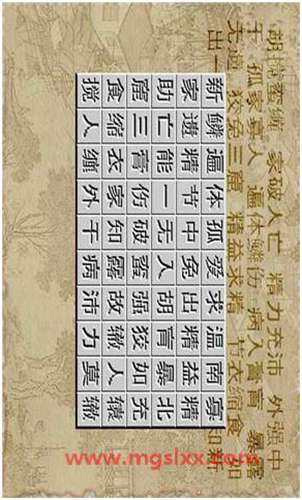 胡搅蛮缠 家破人亡 精力充沛 外强中
干 孤家寡人 遍体鳞伤 病入膏肓 暴露
无遗 狡兔三窟 精益求精 节衣缩食 如
出一
新鳞遍体孤爱求温南寡
家遗精节中兔出精益
助亡能一无入胡肓暴北
窟三膏伤破蛮强狡加充
食缩衣家知露故辙人辕
搅人缠外干病沛力莫辙
www.mgslxx.com